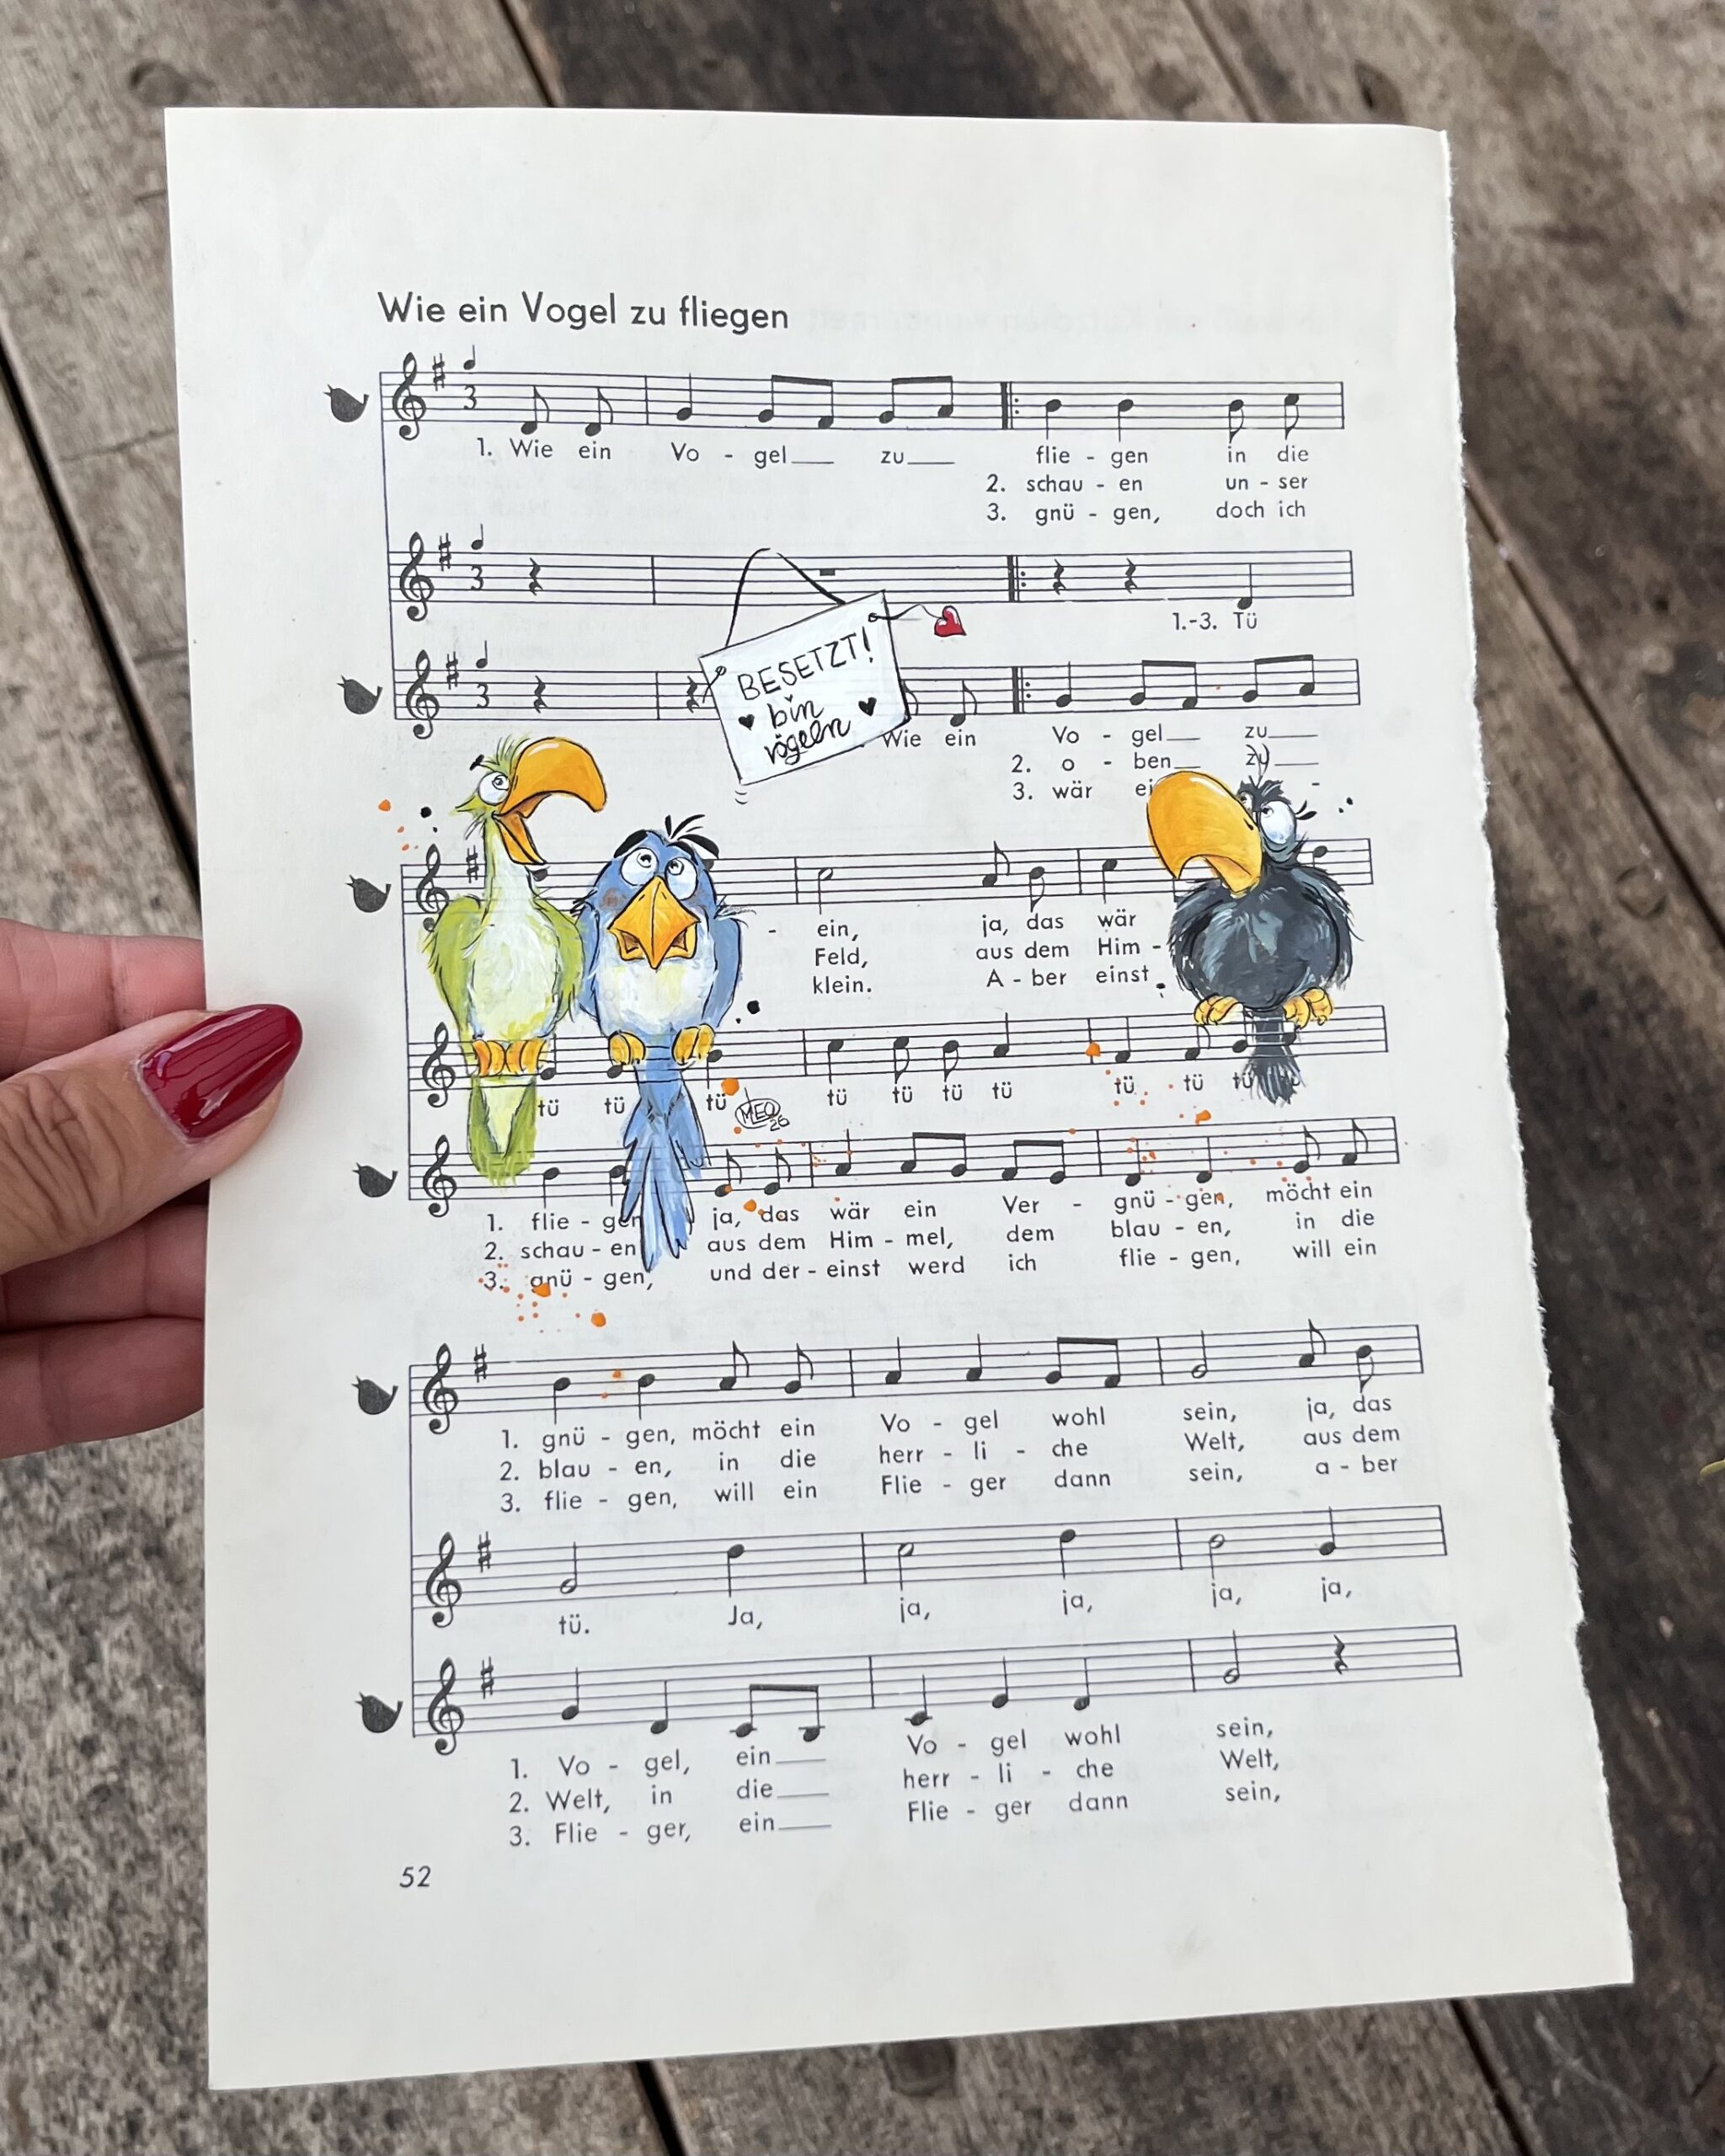 Wie ein Vogel zu fliegen
3
1. Wie ein Vo - gel zu flie - gen in die
2. schau - en un - ser
3. gnü - gen, doch ich
3
1.-3. Tü
BESETZT!
bin
vögeln
3
Wie ein Vo - gel zu
2. o - ben zu
3. wär
- ein, ja, das wär
Feld, aus dem Him -
klein. A - ber einst
tü tü tü tü tü tü tü tü tü tü
MEO
26
1. flie - gen ja, das wär ein Ver - gnü - gen, möcht ein
2. schau - en aus dem Him - mel, dem blau - en, in die
3. gnü - gen, und der - einst werd ich flie - gen, will ein
1. gnü - gen, möcht ein Vo - gel wohl sein, ja, das
2. blau - en, in die herr - li - che Welt, aus dem
3. flie - gen, will ein Flie - ger dann sein, a - ber
tü. Ja, ja, ja, ja, ja,
1. Vo - gel, ein Vo - gel wohl sein,
2. Welt, in die herr - li - che Welt,
3. Flie - ger, ein Flie - ger dann sein,
52